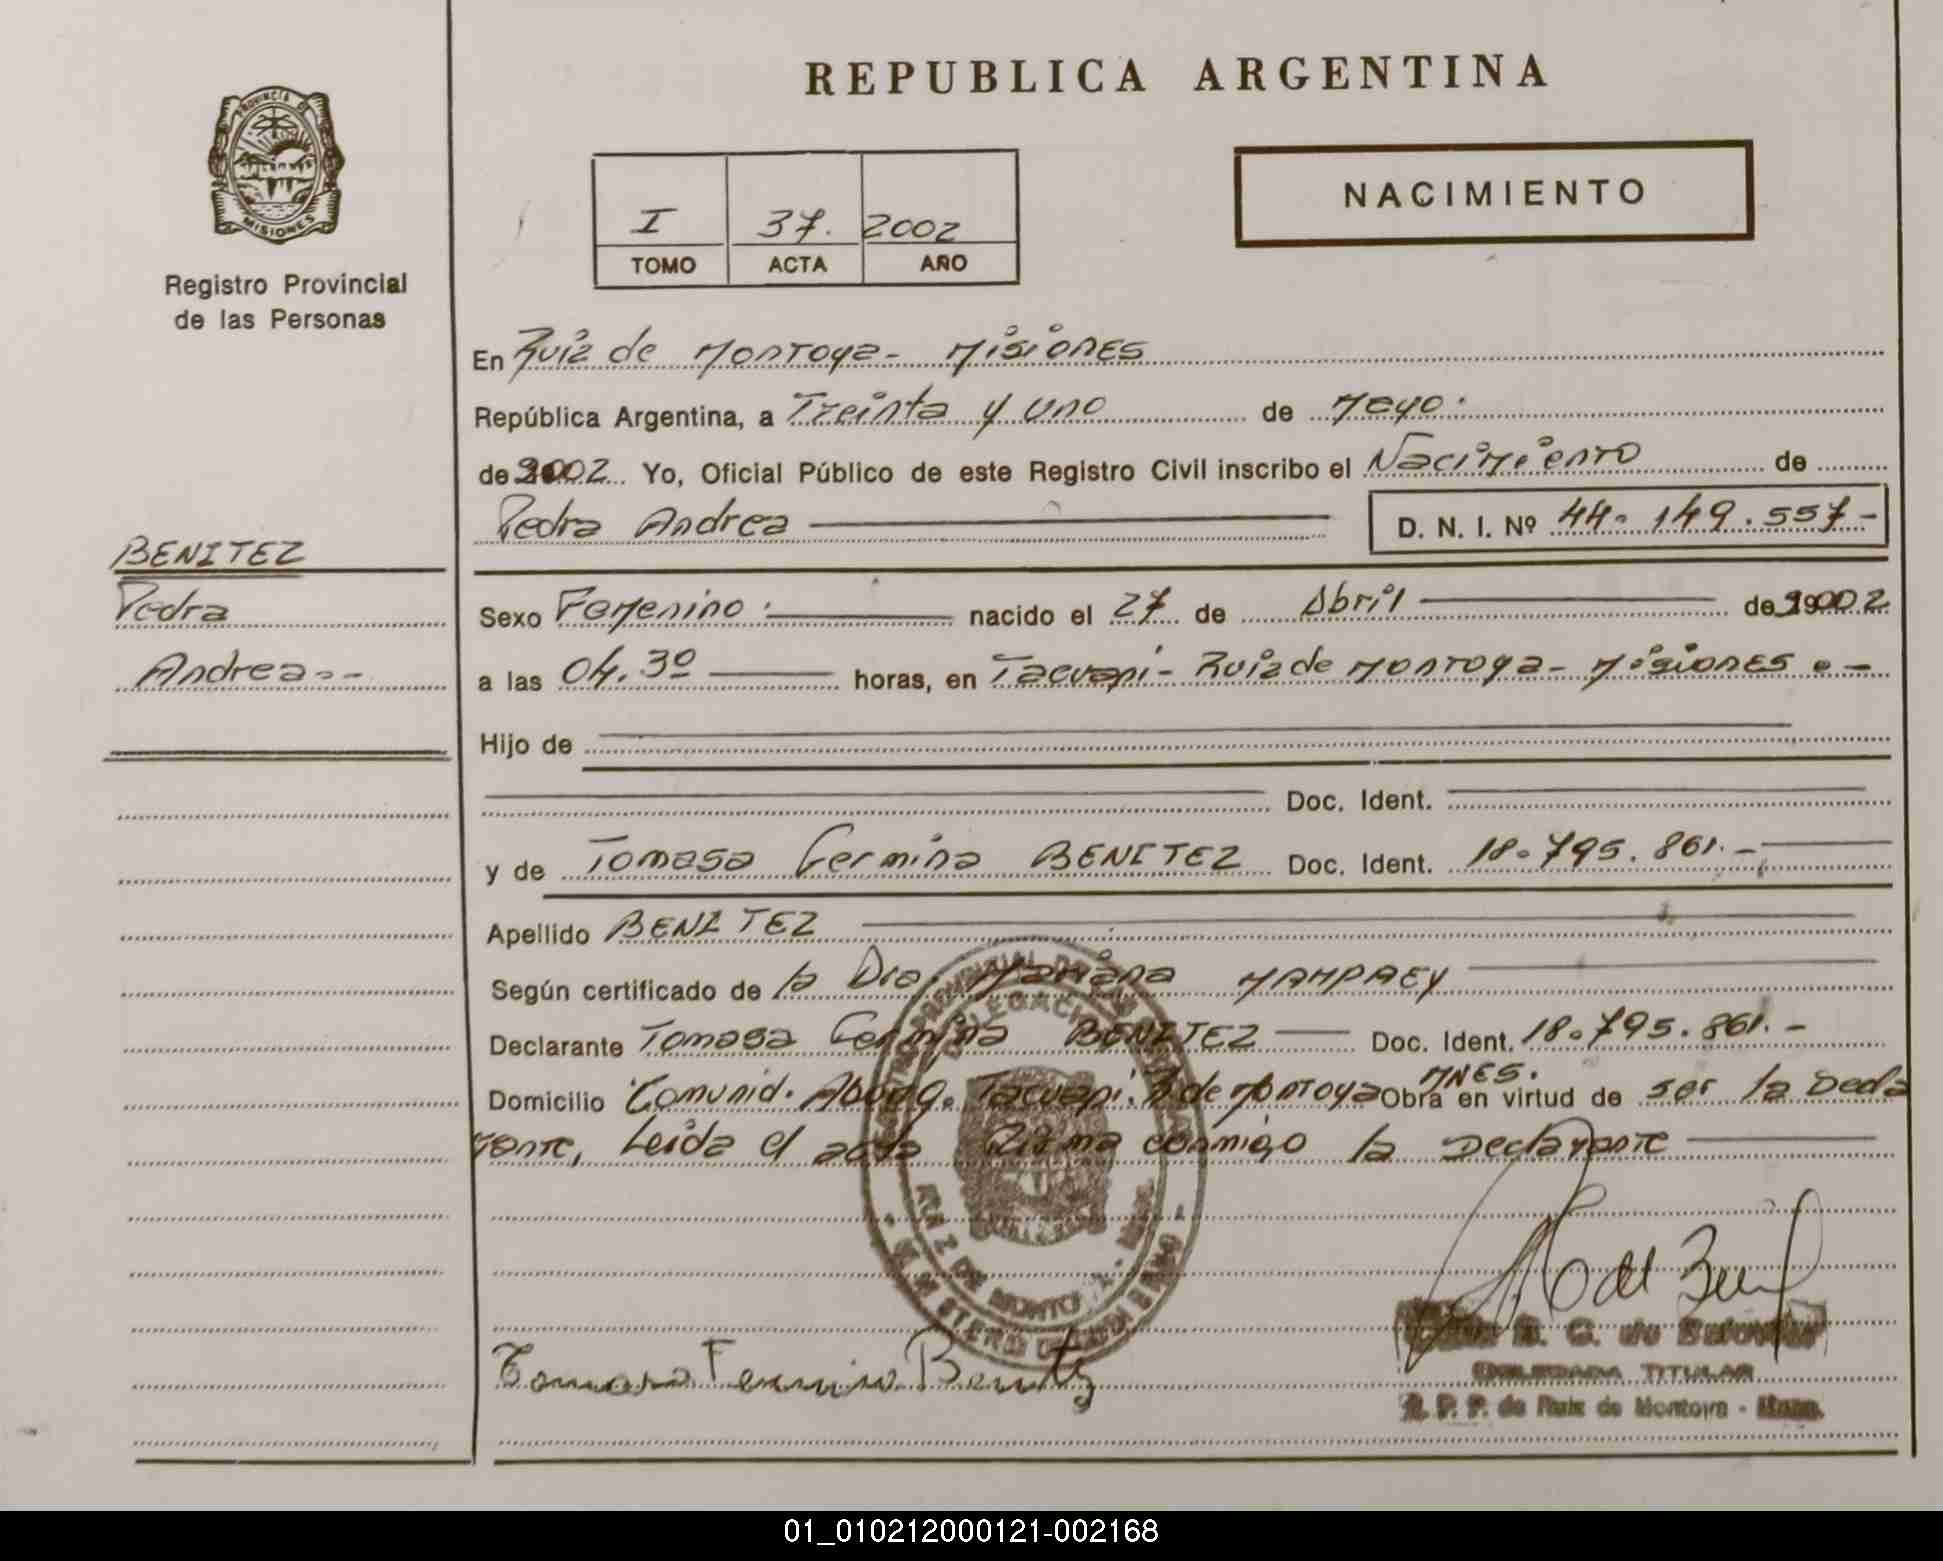 REPUBLICA ARGENTINA
PROVINCIA DE
MISIONES
Registro Provincial
de las Personas
I 37. 2002
TOMO ACTA AÑO
NACIMIENTO
En Ruiz de Montoya - Misiones
República Argentina, a Treinta y uno de Mayo.
de 2002 Yo, Oficial Público de este Registro Civil inscribo el Nacimiento de
Pedra Andrea D. N. I. Nº 44.149.557-
BENITEZ
Pedra
Andrea--
Sexo Femenino. nacido el 27 de Abril de 2002
a las 04.30 horas, en Tacuapi - Ruiz de Montoya - Misiones.-
Hijo de
Doc. Ident.
y de Tomasa Fermina BENITEZ Doc. Ident. 18.795.861.-
Apellido BENITEZ
Según certificado de la Dra. Mariana MAMPAEY
Declarante Tomasa Fermina BENITEZ Doc. Ident. 18.795.861.-
Domicilio Comunid. Aborig. Tacuapi. R de Montoya MNES. Obra en virtud de ser la Decla
rante, Leida el acta Firma conmigo la Declarante
DELEGACION
RUIZ DE MONTOYA - MNES.
MINISTERIO DE GOBIERNO
Tomasa Fermina Benitez
S. G. de
DELEGADA TITULAR
R. P. P. de Ruiz de Montoya - Mnes.
01_010212000121-002168